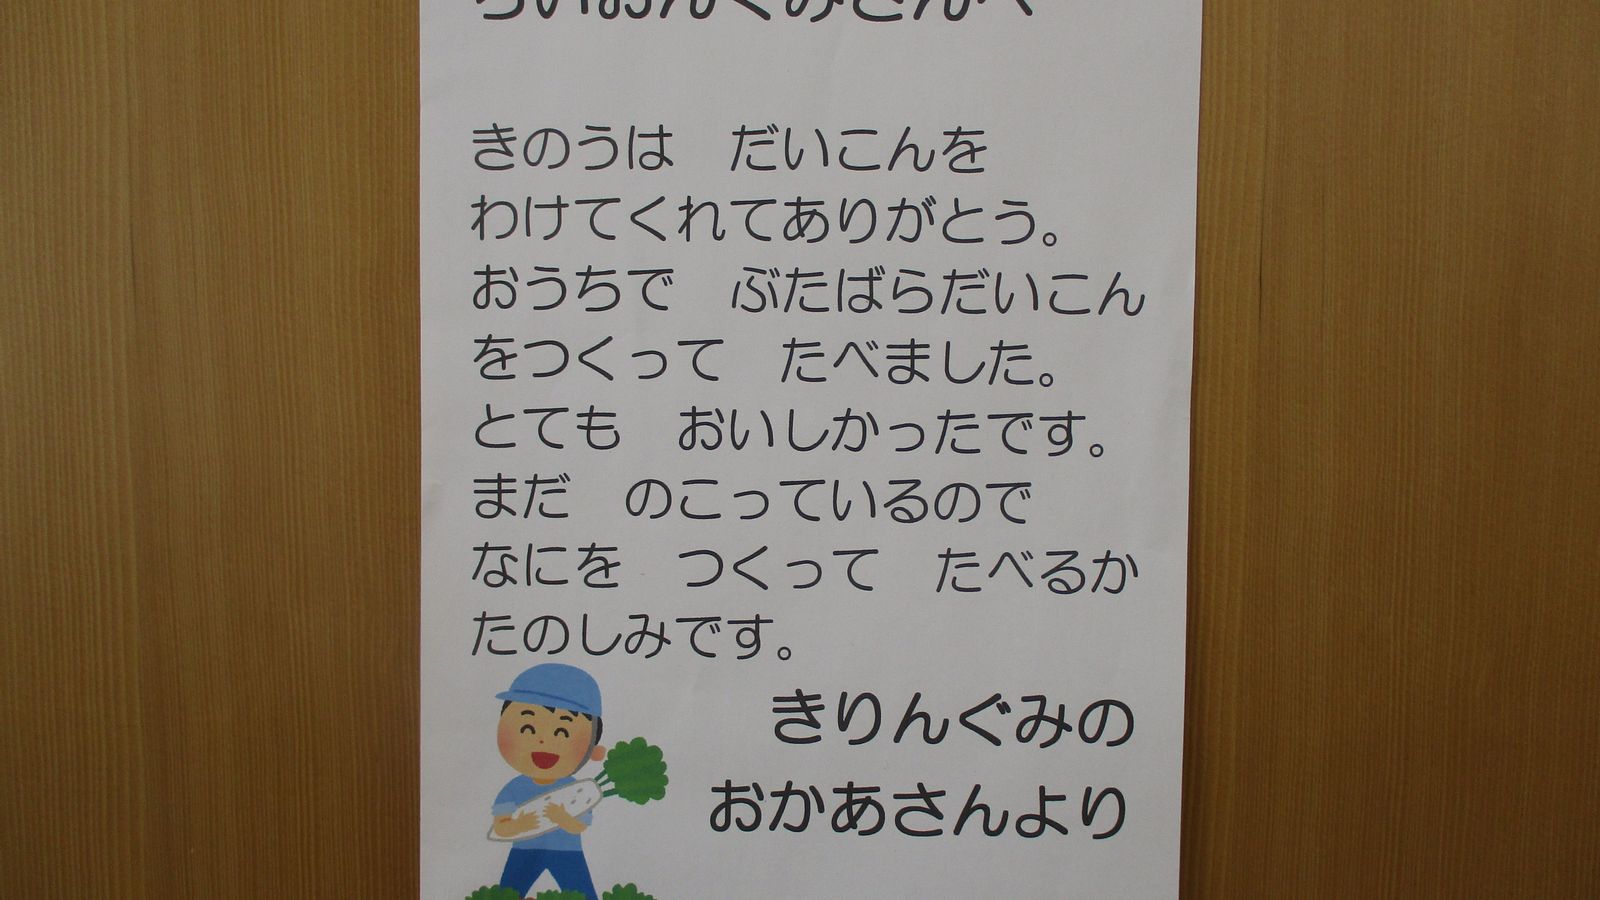 らいおんぐみさんへ
きのうは　だいこんを
わけてくれてありがとう。
おうちで　ぶたばらだいこん
をつくって　たべました。
とても　おいしかったです。
まだ　のこっているので
なにを　つくって　たべるか
たのしみです。
きりんぐみの
おかあさんより